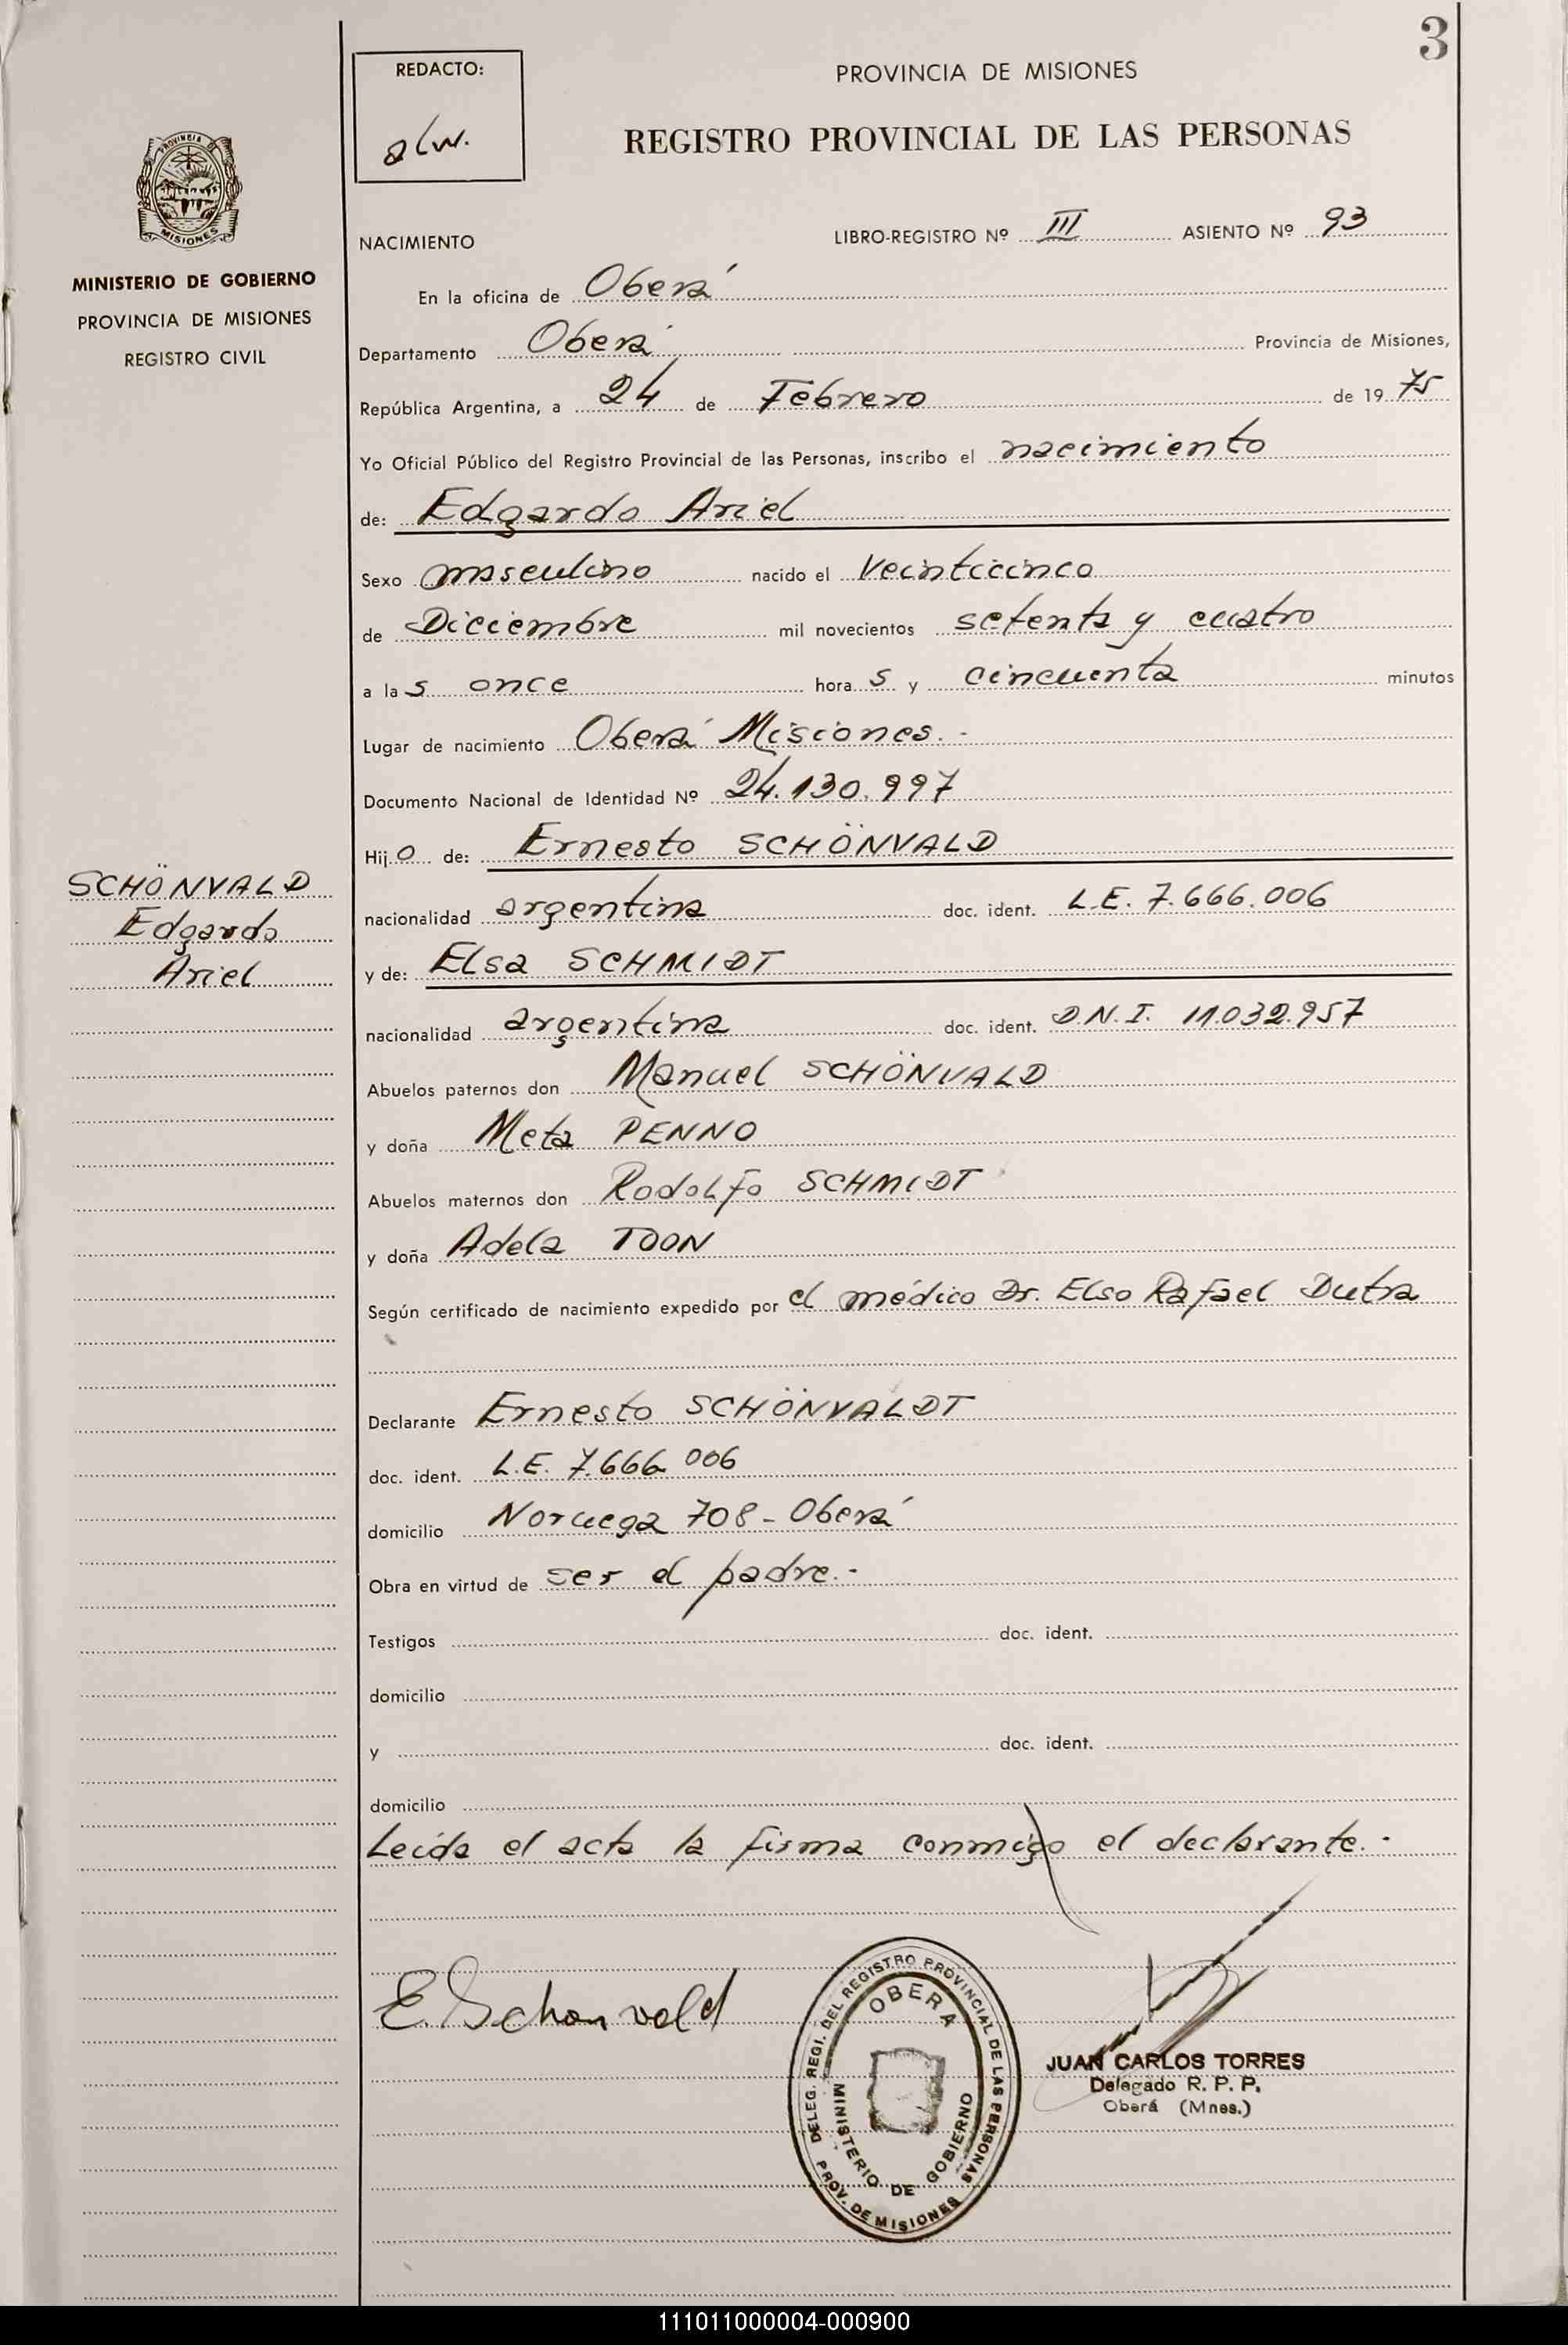 3
REDACTO:
alw.
PROVINCIA DE MISIONES
REGISTRO PROVINCIAL DE LAS PERSONAS
PROVINCIA DE
MISIONES
MINISTERIO DE GOBIERNO
PROVINCIA DE MISIONES
REGISTRO CIVIL
NACIMIENTO LIBRO-REGISTRO Nº III ASIENTO Nº 93
En la oficina de Oberá
Departamento Oberá Provincia de Misiones,
República Argentina, a 24 de Febrero de 1975
Yo Oficial Público del Registro Provincial de las Personas, inscribo el nacimiento
de: Edgardo Ariel
Sexo masculino nacido el Veinticinco
de Diciembre mil novecientos setenta y cuatro
a las once horas y cincuenta minutos
Lugar de nacimiento Oberá Misiones.-
Documento Nacional de Identidad Nº 24.130.997
Hijo de: Ernesto SCHÖNVALD
SCHÖNVALD
Edgardo
Ariel
nacionalidad argentina doc. ident. L.E. 7.666.006
y de: Elsa SCHMIDT
nacionalidad argentina doc. ident. D.N.I. 11.032.957
Abuelos paternos don Manuel SCHÖNVALD
y doña Meta PENNO
Abuelos maternos don Rodolfo SCHMIDT
y doña Adela TOON
Según certificado de nacimiento expedido por el médico Dr. Elso Rafael Dutra
Declarante Ernesto SCHÖNVALDT
doc. ident. L.E. 7.666 006
domicilio Noruega 708 - Oberá
Obra en virtud de ser el padre.-
Testigos doc. ident.
domicilio
y doc. ident.
domicilio
Leída el acta la firma conmigo el declarante.-
E. Schonvald
DELEG. REGI. DEL REGISTRO PROVINCIAL DE LAS PERSONAS
OBERA
MINISTERIO DE GOBIERNO
PROV. DE MISIONES
JUAN CARLOS TORRES
Delegado R. P. P.
Oberá (Mnes.)
111011000004-000900